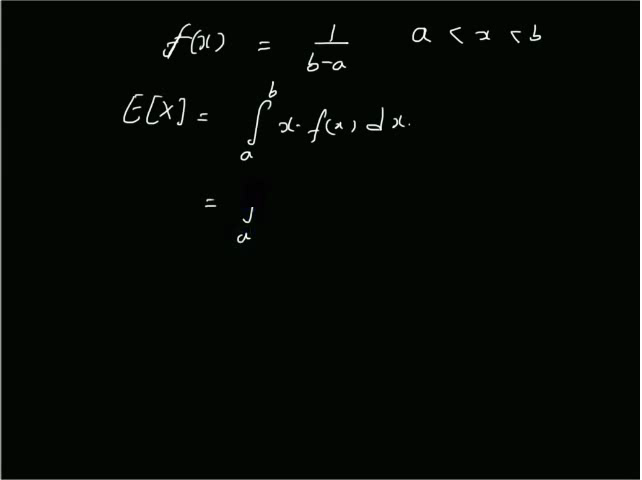 f(x) = 1/(b-a) a < x < b
E[X] = ∫_a^b x · f(x) dx.
= ∫_a